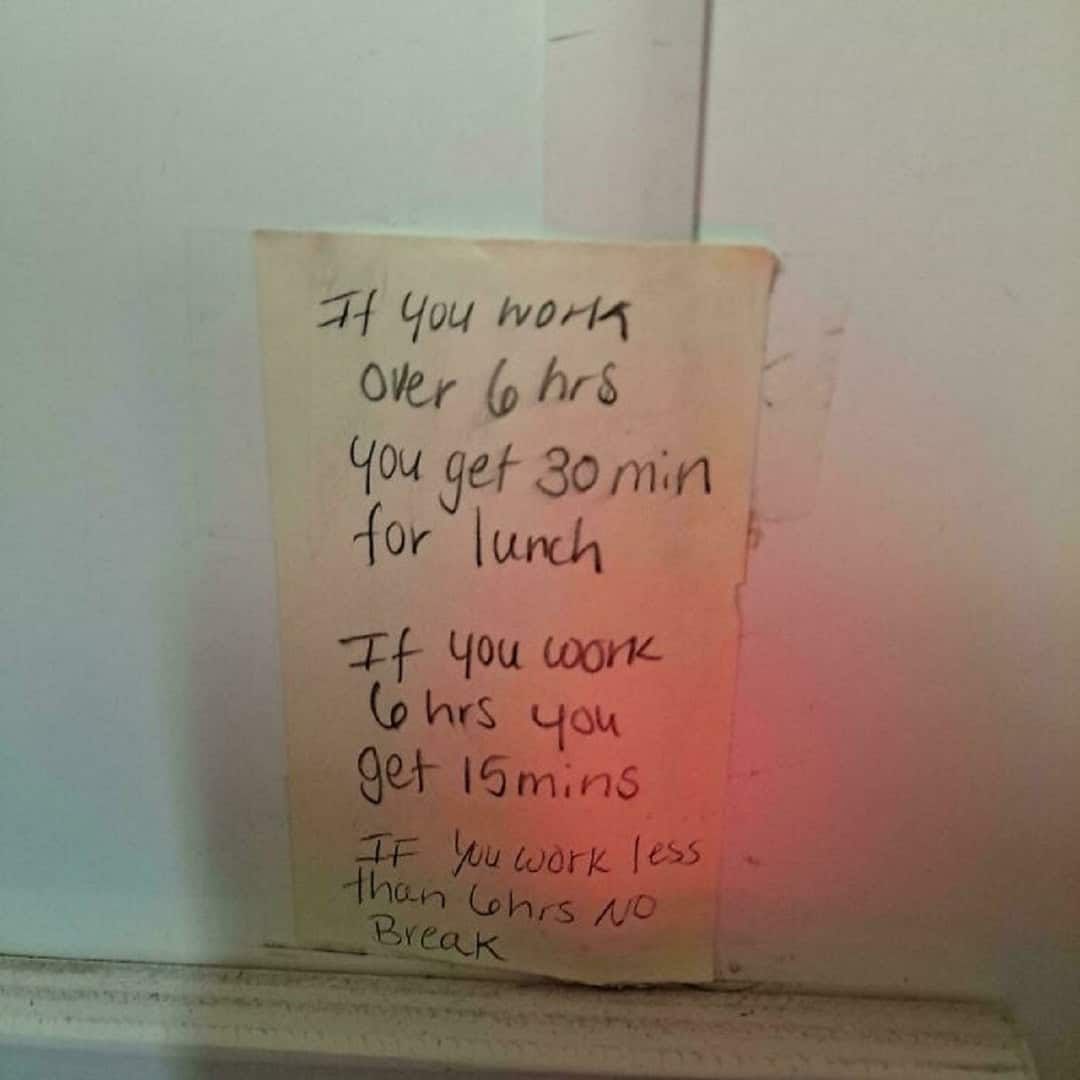 If you work
over 6 hrs
you get 30 min
for lunch
If you work
6 hrs you
get 15 mins
IF you work less
than 6 hrs NO
Break